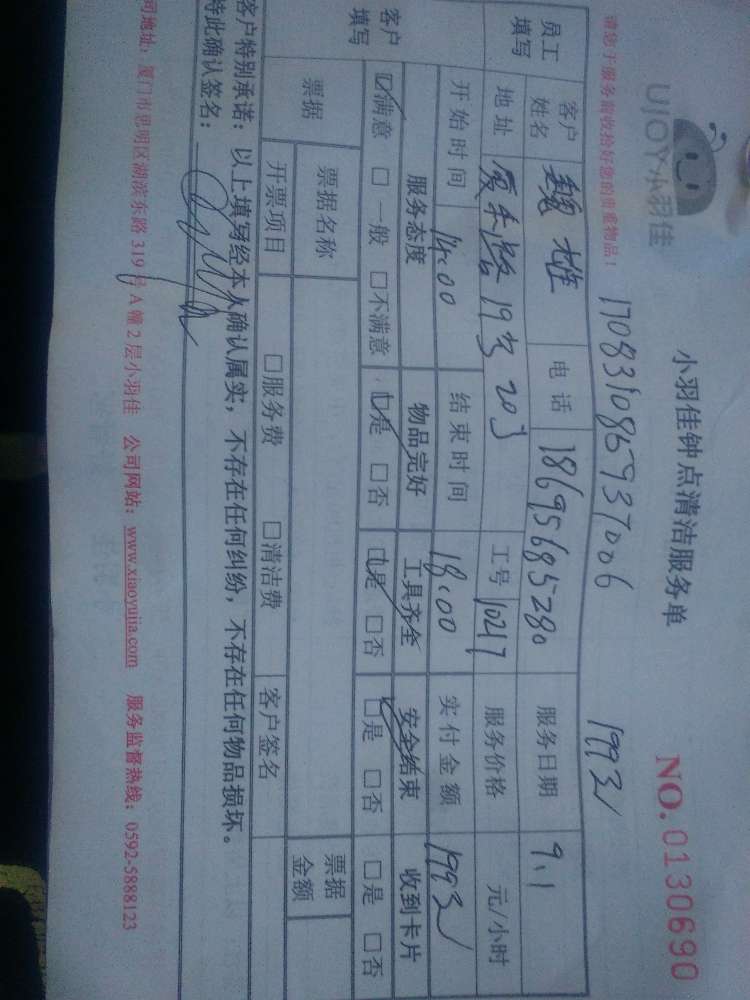 UJOY小羽佳
小羽佳钟点清洁服务单
NO.0130690
请您于服务前收拾好您的贵重物品！
170831086937006
1993/
员工填写
客户姓名 魏雄 电话 18695685280 服务日期 9.1
地址 19号 203 工号 10217 服务价格 元/小时
开始时间 14:00 结束时间 18:00 实付金额 1993/
客户填写
服务态度 物品完好 工具齐全 安全结束 收到卡片
☑满意 □一般 □不满意 ☑是 □否 ☑是 □否 ☑是 □否 □是 □否
票据 票据名称 票据金额
开票项目 □服务费 □清洁费 客户签名
客户特别承诺：以上填写经本人确认属实，不存在任何纠纷，不存在任何物品损坏。
特此确认签名：
司地址：厦门市思明区湖滨东路319号A幢2层小羽佳 公司网站：www.xiaoyujia.com 服务监督热线：0592-5888123